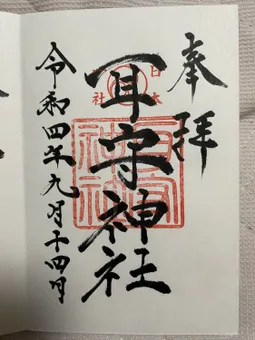 奉拝
日本
社
耳守神社
耳守
神社
令和四年九月十四日